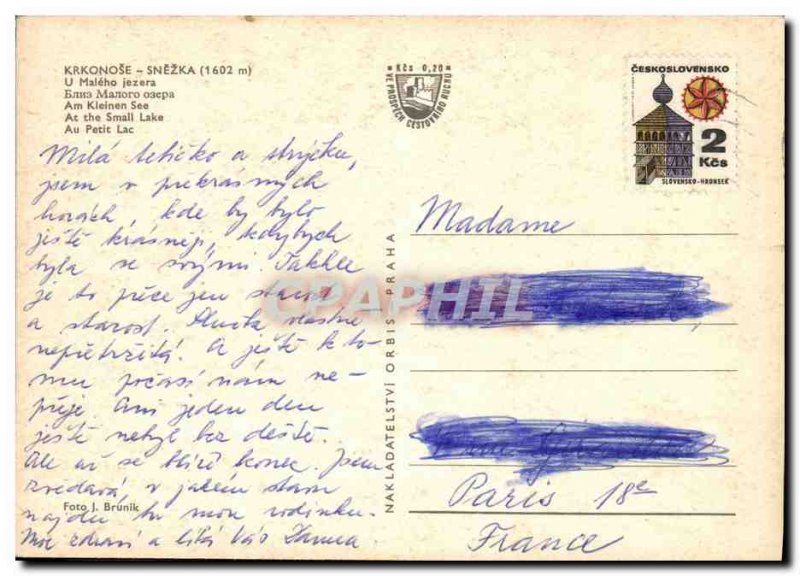 KRKONOŠE – SNĚŽKA (1602 m)
U Malého jezera
Близ Малого озера
Am Kleinen See
At the Small Lake
Au Petit Lac
Milá tetičko a strýčku,
jsem v překrásných
horách, kde by bylo
ještě krásněji, kdybych
byla se svými. Takhle
je to péče jen starost
a starost. Služba vlastně
nepřetržitá. A ještě k to-
mu počasí nám ne-
přeje. Ani jeden den
ještě nebyl bez deště.
Ale už se blíží konec. Jsem
zvědavá v jakém stavu
najdu tu mou rodinku.
Moc zdraví a líbá Vás
Foto J. Bruník
NAKLADATELSTVÍ ORBIS PRAHA
Kčs 0,20
VE PROSPĚCH CESTOVNÍHO RUCHU
ČESKOSLOVENSKO
2
Kčs
SLOVENSKO-HRONSEK
Madame
Paris 18e
France
CPAPHIL